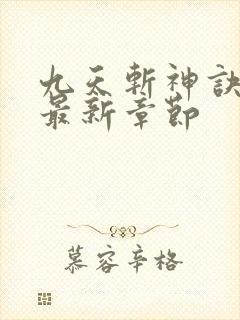 九天斬神訣
最新章節
慕容辛格